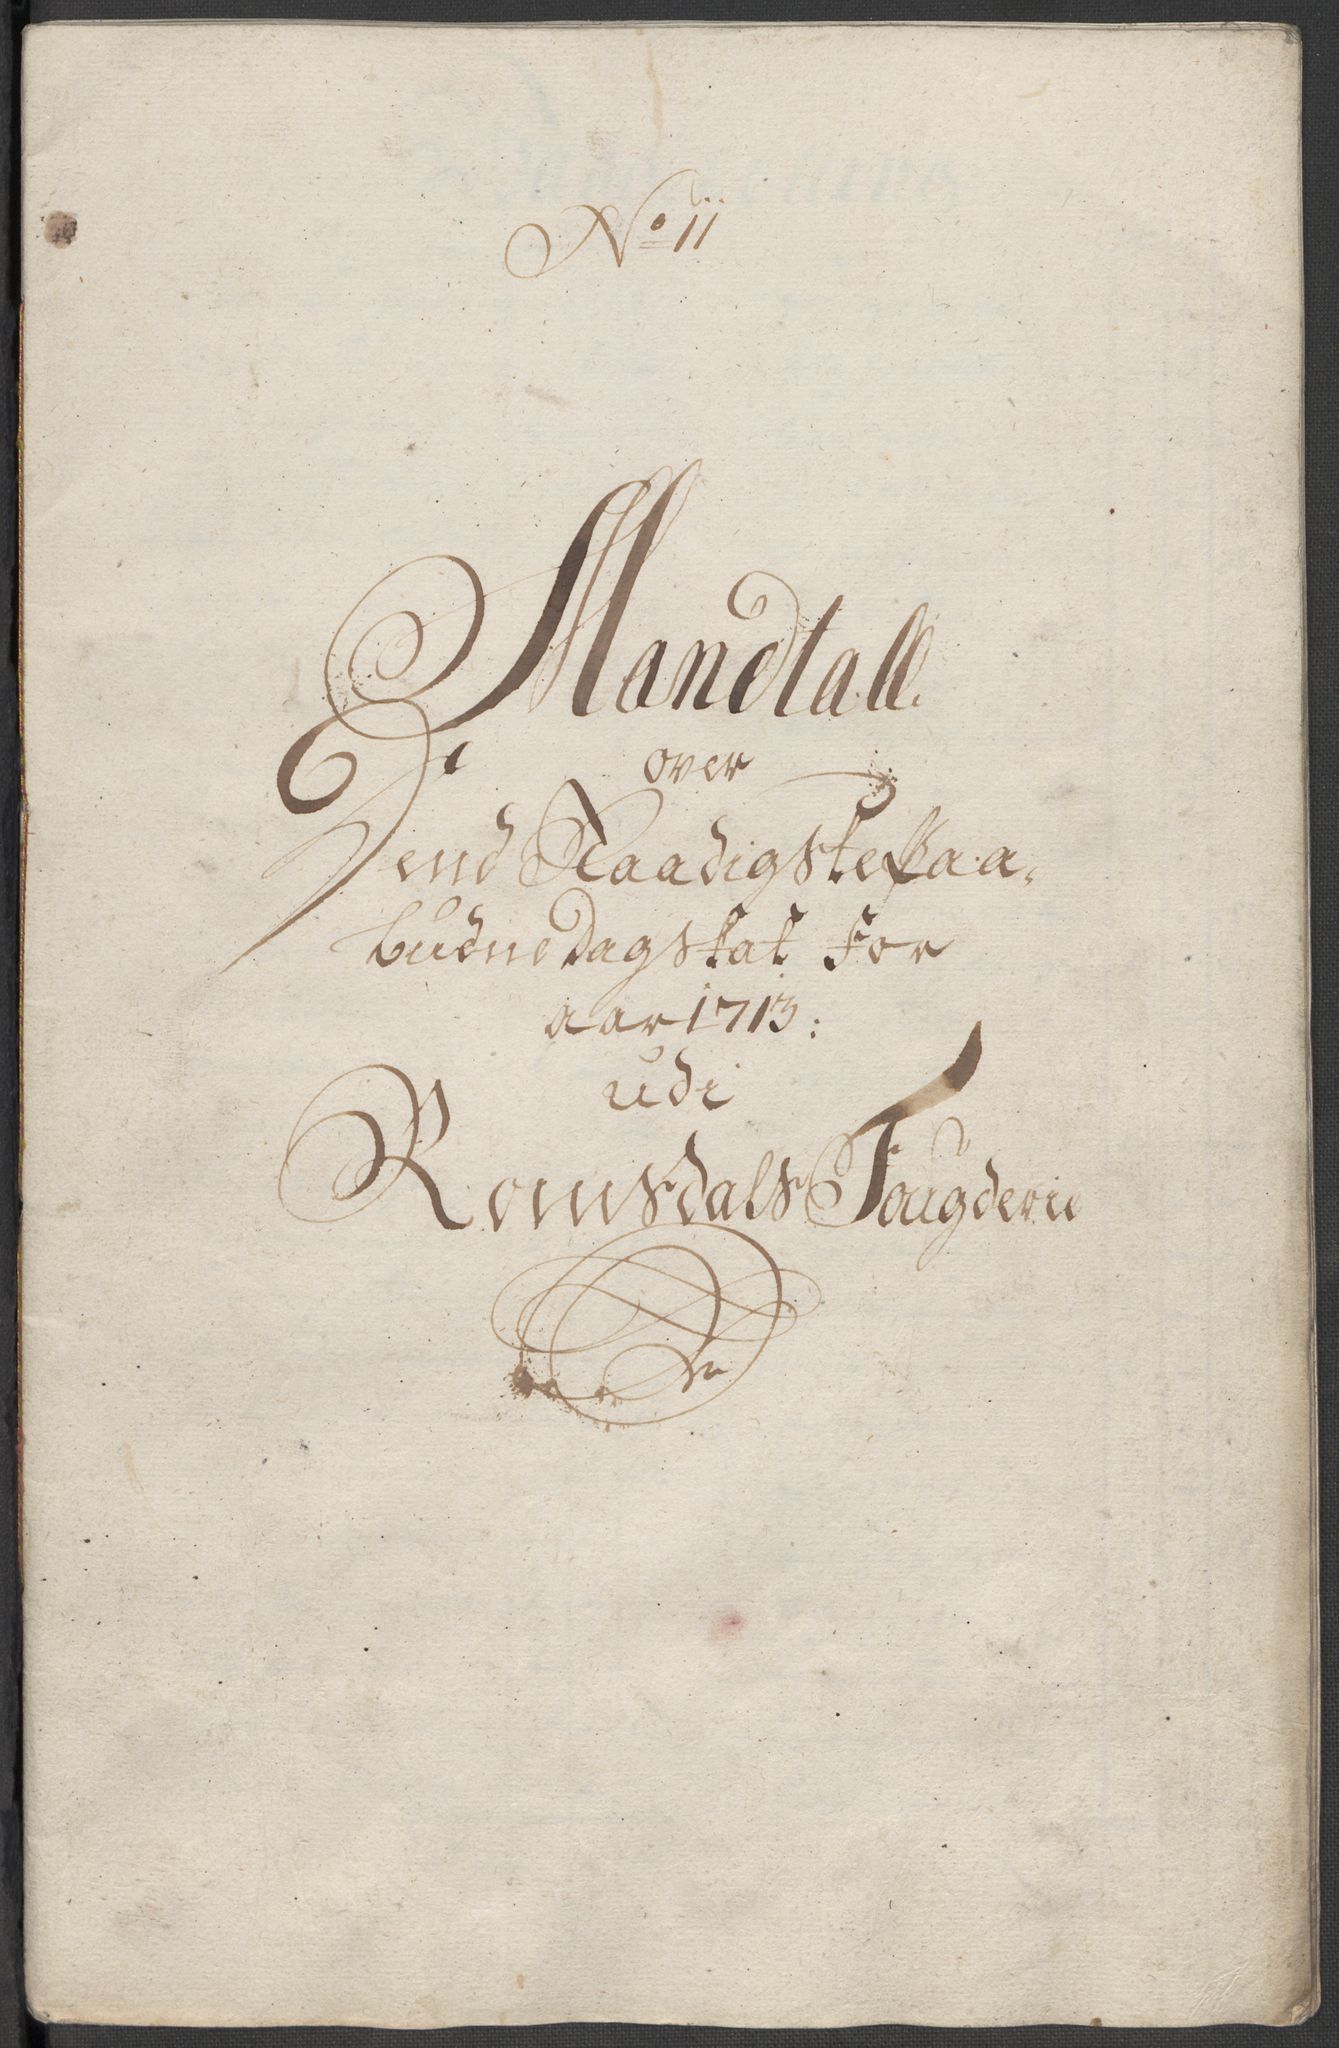 No 11
Mandtall.
over
Dend Naadigste Paa,
budne Dagskat for
aar 1713:
udi
Romsdals Fougderie